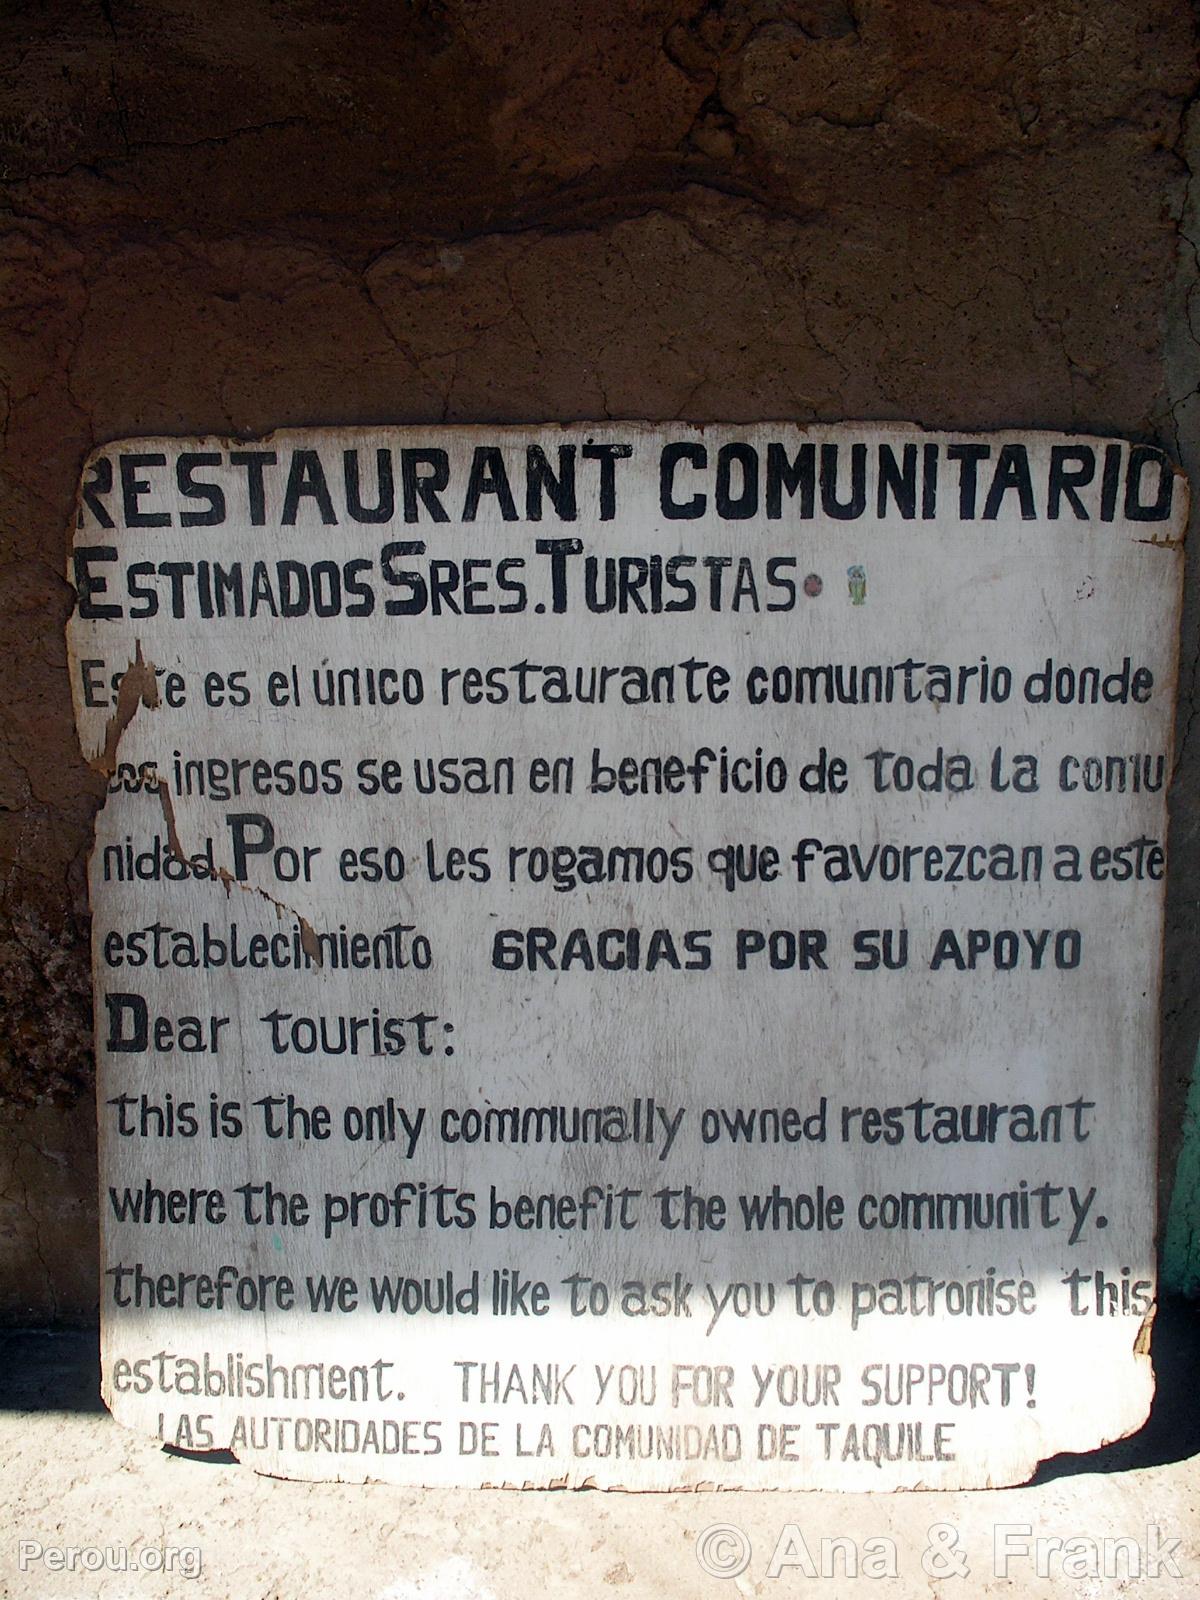 RESTAURANT COMUNITARIO
ESTIMADOS SRES. TURISTAS
Este es el único restaurante comunitario donde
los ingresos se usan en beneficio de toda la comu
nidad. Por eso les rogamos que favorezcan a este
establecimiento GRACIAS POR SU APOYO
Dear tourist:
this is the only communally owned restaurant
where the profits benefit the whole community.
therefore we would like to ask you to patronise this
establishment. THANK YOU FOR YOUR SUPPORT!
LAS AUTORIDADES DE LA COMUNIDAD DE TAQUILE
Perou.org
© Ana & Frank